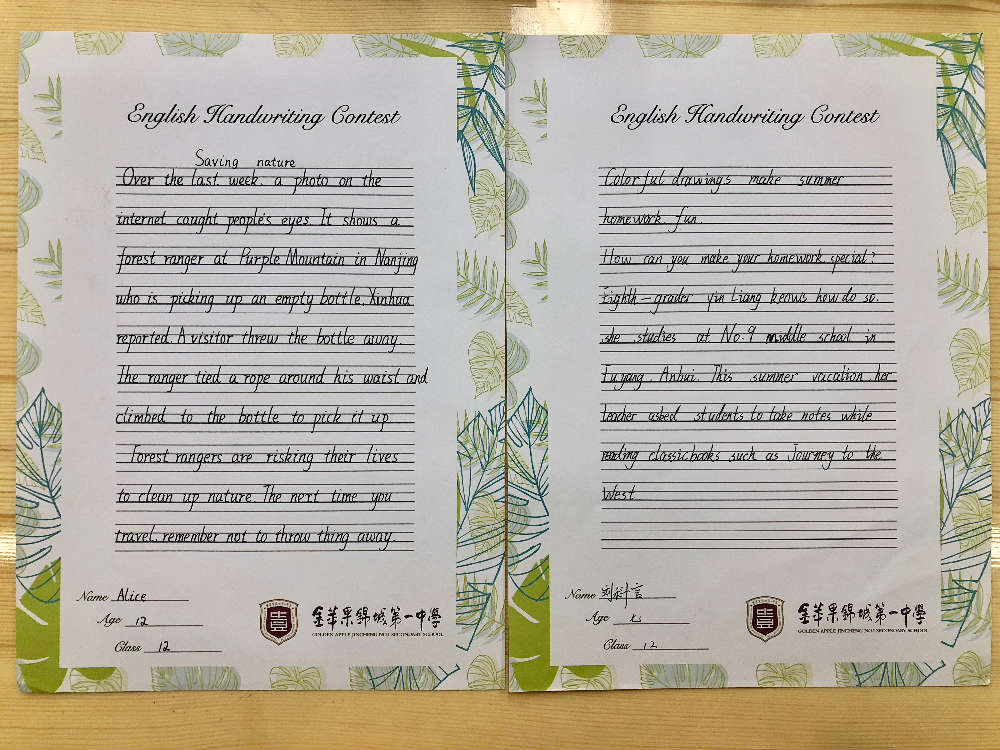 English Handwriting Contest
Saving nature
Over the last week. a photo on the
internet caught people's eyes. It shows a
forest ranger at Purple Mountain in Nanjing
who is picking up an empty bottle, Xinhua
reported. A visitor threw the bottle away.
The ranger tied a rope around his waist and
climbed to the bottle to pick it up
Forest rangers are risking their lives
to clean up nature. The next time you
travel, remember not to throw thing away.
Name Alice
Age 12
Class 12
金苹果錦城第一中學
GOLDEN APPLE JINCHENG NO.1 SECONDARY SCHOOL
English Handwriting Contest
Colorful drawings make summer
homework fun.
How can you make your homework special?
Eighth-grader yin Liang keows how do so.
she studies at No.9 middle school in
Fuyang, Anhui. This summer vacation her
teacher asked students to take notes while
reading classic books such as Journey to the
West
Name 刘 言
Age
Class 12
金苹果錦城第一中學
GOLDEN APPLE JINCHENG NO.1 SECONDARY SCHOOL